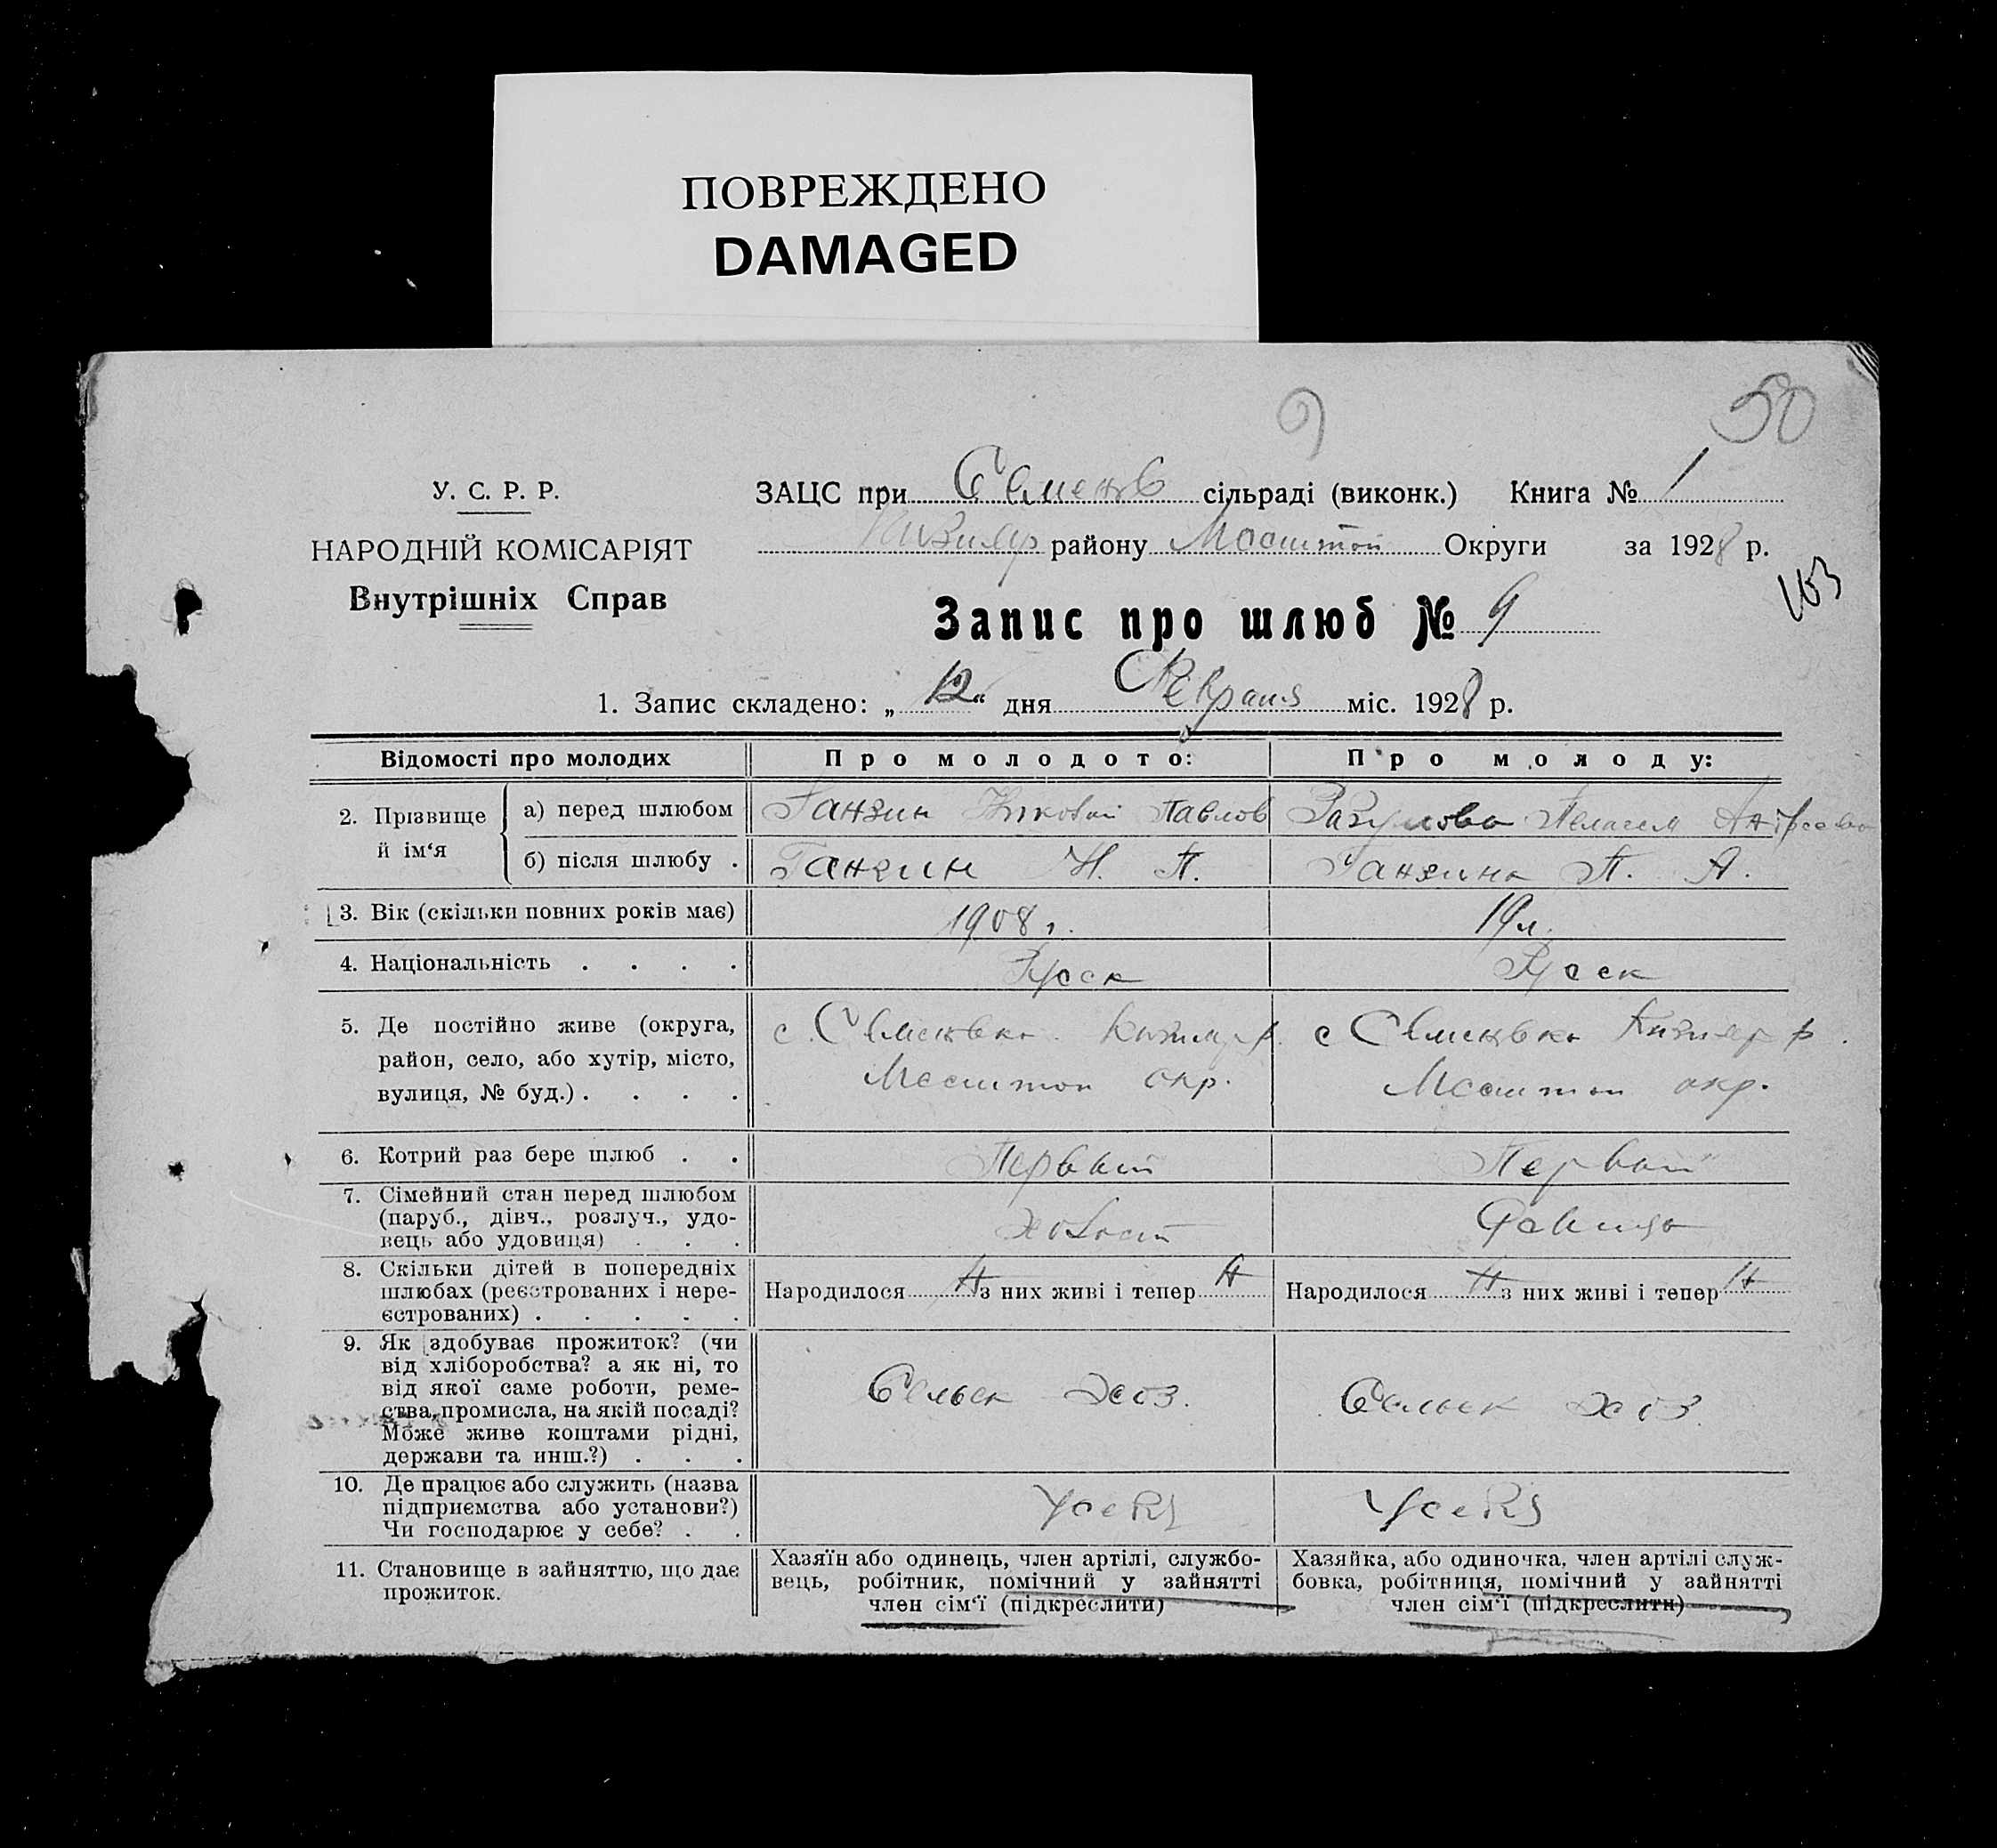 ПОВРЕЖДЕНО
DAMAGED
9
50
У. С. Р. Р.
НАРОДНІЙ КОМІСАРІЯТ
Внутрішніх Справ
ЗАЦС при Семенов сільраді (виконк.) Книга № 1
Кизияр району Округи за 1928 р.
103
Запис про шлюб № 9
1. Запис складено: „12“ дня Февраля міс. 1928 р.
Відомості про молодих
Про молодого:
Про молоду:
2. Прізвище й ім‘я
а) перед шлюбом
Ганзин Павлов
Пелагея
б) після шлюбу .
Ганзин Н. П.
Ганзина П. А.
3. Вік (скільки повних років має)
1908 г.
19 л.
4. Національність . . . .
Русск
Русск
5. Де постійно живе (округа,
район, село, або хутір, місто,
вулиця, № буд.) . . . .
с. Семеновка Кизияр р.
окр.
с Семеновка Кизияр р.
окр.
6. Котрий раз бере шлюб . .
Первый
Первый
7. Сімейний стан перед шлюбом
(паруб., дівч., розлуч., удо-
вець або удовиця) . . .
холост
девица
8. Скільки дітей в попередніх
шлюбах (реєстрованих і нере-
єстрованих) . . . . .
Народилося Н з них живі і тепер Н
Народилося Н з них живі і тепер Н
9. Як здобуває прожиток? (чи
від хліборобства? а як ні, то
від якої саме роботи, реме-
ства, промисла, на якій посаді?
Може живе коштами рідні,
держави та инш.?) . . .
Сельск Хоз.
Сельск Хоз.
10. Де працює або служить (назва
підприємства або установи?)
Чи господарює у себе? . .
У себя
У себя
11. Становище в зайняттю, що дає
прожиток.
Хазяїн або одинець, член артілі, службо-
вець, робітник, помічний у зайнятті
член сім‘ї (підкреслити)
Хазяйка, або одиночка, член артілі служ-
бовка, робітниця, помічний у зайнятті
член сім‘ї (підкреслити)